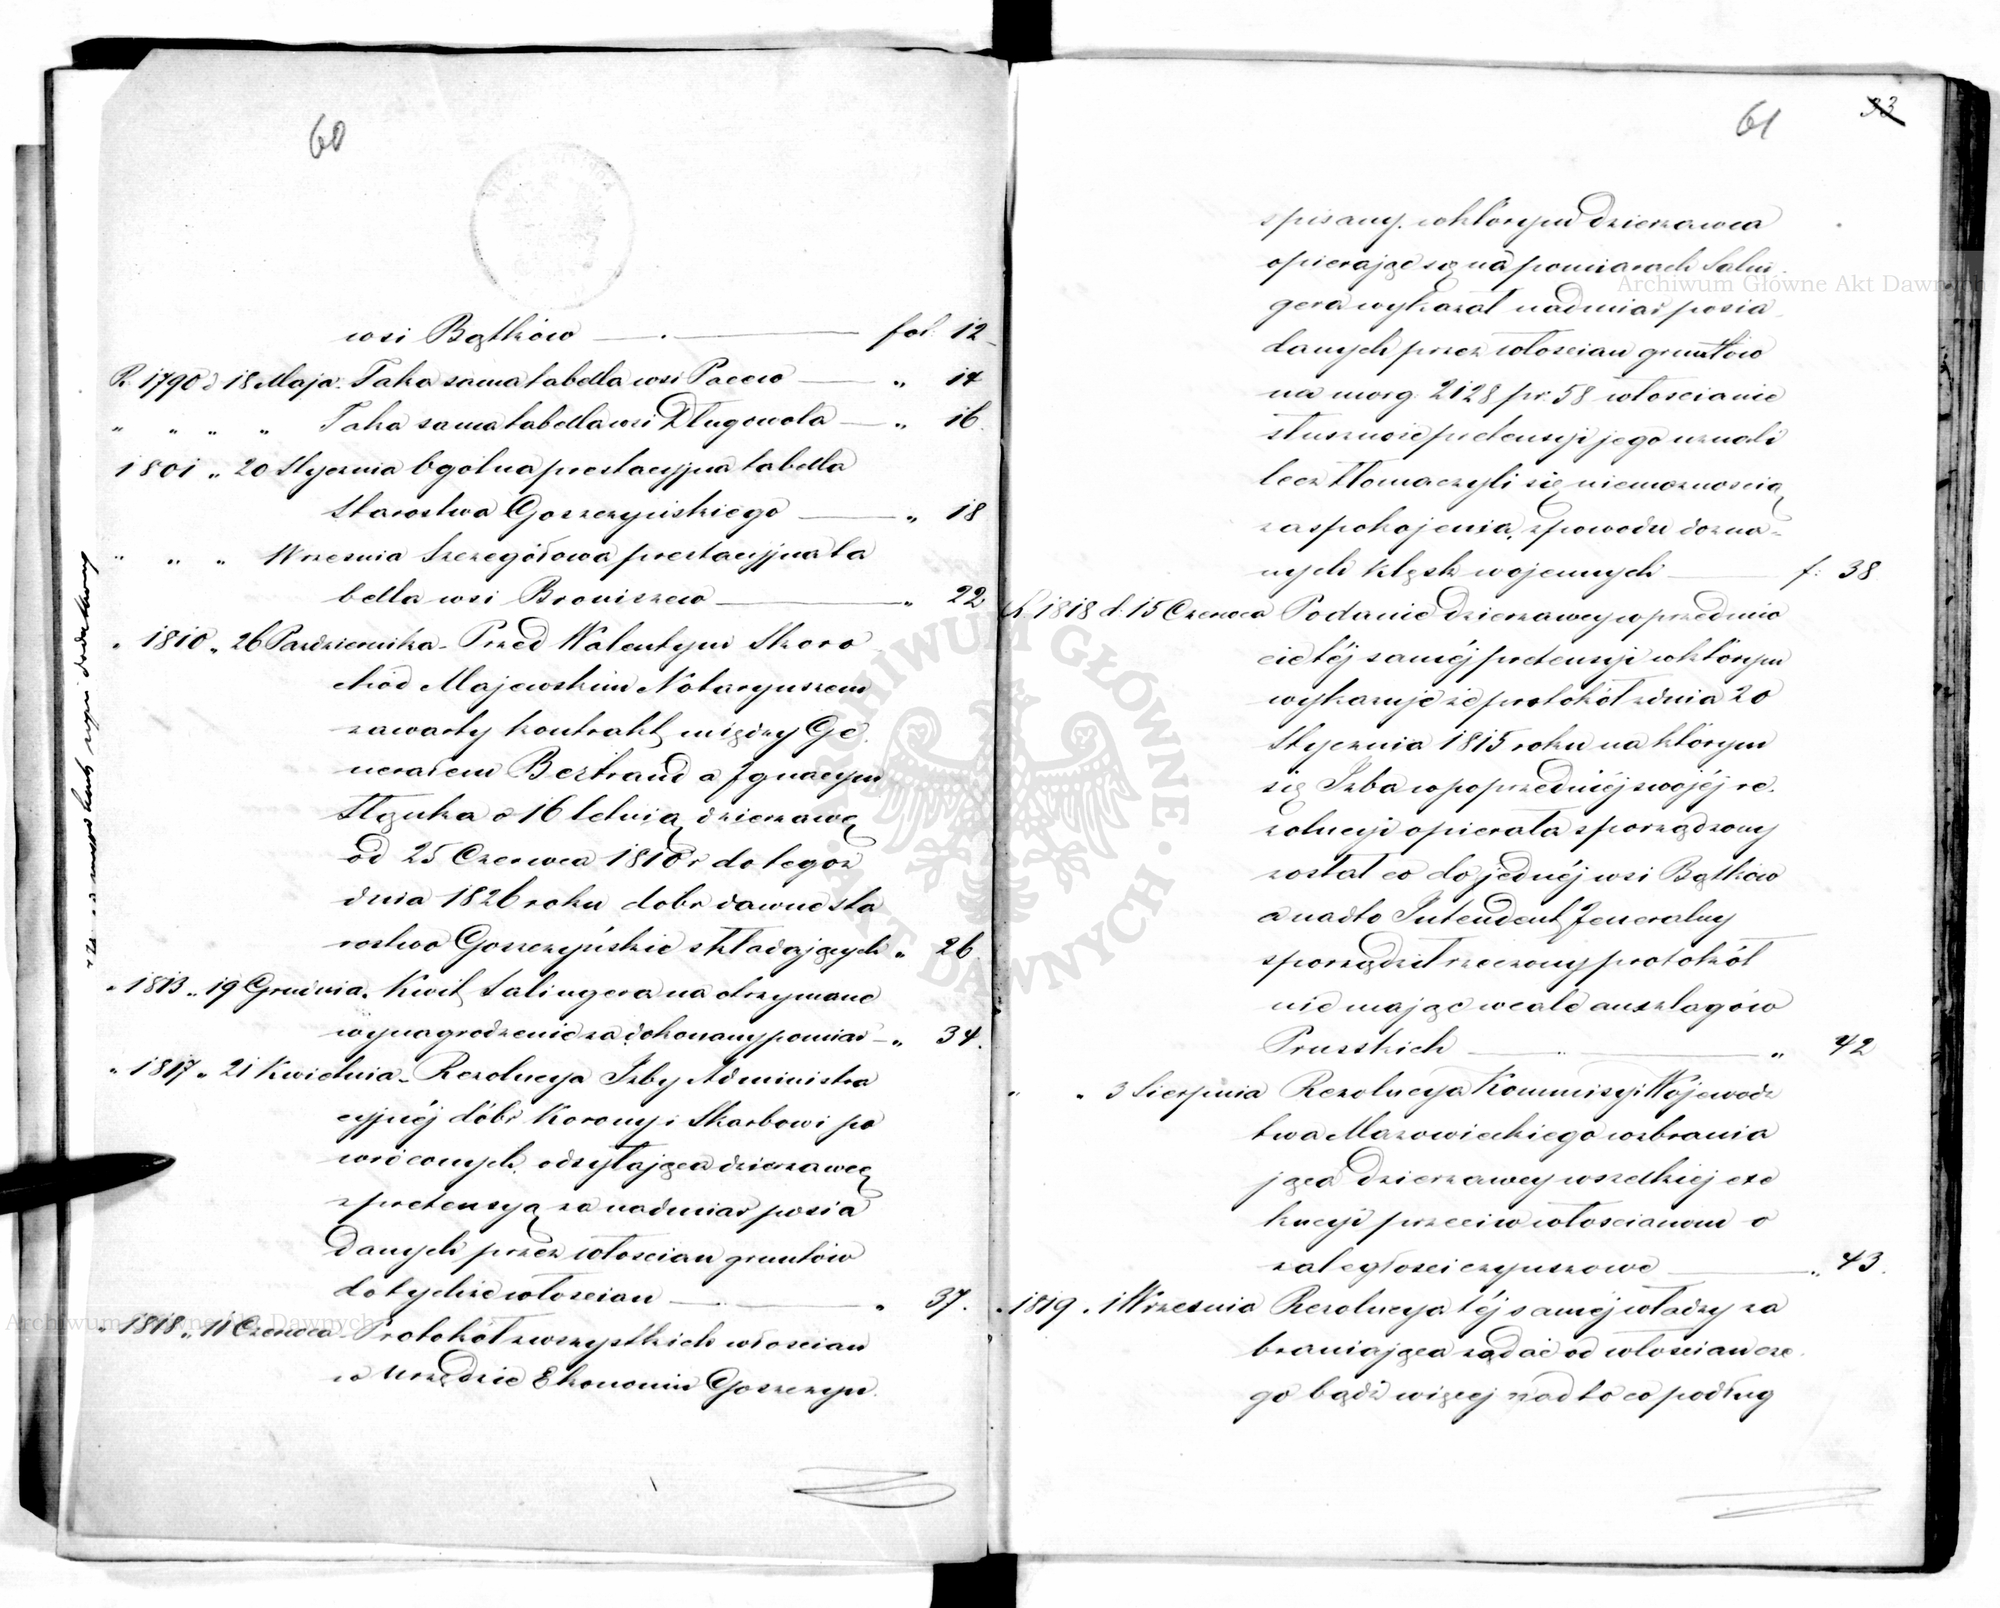 60
wsi Bątków — fol. 12
R. 1790 d 18 Maja. Taka sama tabella wsi Pacew — „ 14
„ „ „ „ Taka sama tabella wsi Długowola — „ 16.
1801 „ 20 Stycznia Ogólna prestacyjna tabella
Starostwa Goszczyńskiego — „ 18
„ „ „ Września Szczegółowa prestacyjna ta
bella wsi Broniszew — „ 22
„ 1810 „ 26 Października - Przed Walentym Skoro
chód Majewskim Notaryuszem
zawarty kontrakt między Ge
nerałem Bertrand a Ignacym
Stzuka o 16 letnią dzierzawę
od 25 Czerwca 1810 r do tegoż
dnia 1826 roku dóbr dawne sta
rostwo Goszczyńskie składających „ 26
„ 1813 „ 19 Grudnia. Kwit Salingera na otrzymane
wynagrodzenie za dokonany pomiar — „ 34.
„ 1817 „ 21 Kwietnia - Rezolucya Izby Administra
cyjnéj dóbr Korony i Skarbowi po
wróconych, odsyłająca dzierzawcę
z pretensyą za nadmiar posia
danych przez włoscian gruntów
do tychże włoscian — „ 37.
„ 1818 „ 11 Czerwca - Protokół z wszystkich włoscian
w Urzędzie Ekonomii Goszczyn.
61
33
spisany. w którym dzierzawca
opierając się na pomiarach Salin
gera wykazał nadmiar posia
danych przez włoscian gruntów
na morg. 2128 pr. 58 włoscianie
słuszność pretensyi jego uznali
lecz tłomaczyli się niemoznoscią
zaspokojenia, z powodu dozna-
nych klęsk wojennych — f: 38
R. 1818 d. 15 Czerwca Podanie dzierzawcy w przedmio
cie téj saméj pretensyi w którym
wykazuje że protokół z dnia 20
Stycznia 1815 roku na którym
się Izba w poprzedniéj swojéj re.
zolucyi opierała sporządzony
został co do jednéj wsi Bątków
a nadto Intendent Jeneralny
sporządził rzeczony protokół
nie mając wcale anszlagów
Pruskich — „ 42
„ „ 3 Sierpnia Rezolucya Kommisyi Wojewódz
twa Mazowieckiego wzbrania
jąca dzierzawcy wszelkiéj exe
kucyi przeciw włoscianom o
zaległosci czynszowe — „ 43.
„ 1819 „ 1 Września Rezolucya téj saméj władzy za
braniająca żądać od włoscian cze.
go bądź więcej nad to co podług
Archiwum Główne Akt Dawnych
Archiwum Główne Akt Dawnych
ARCHIWUM GŁÓWNE · AKT DAWNYCH ·